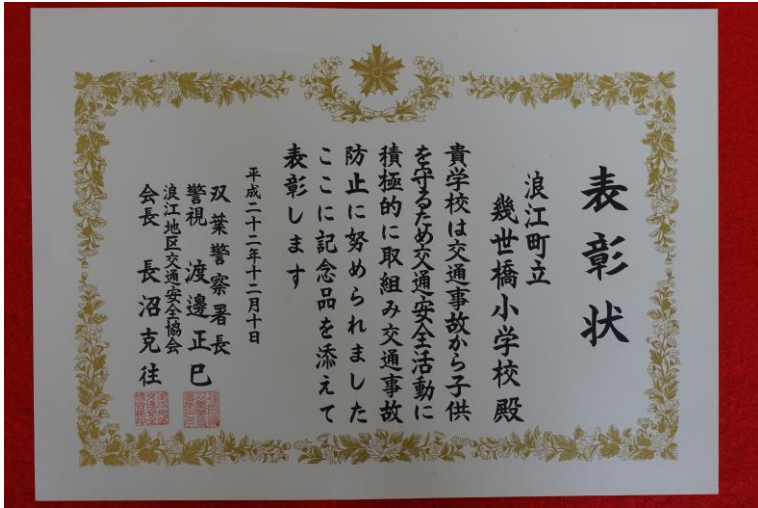 表彰状
浪江町立
幾世橋小学校殿
貴学校は交通事故から子供
を守るため交通安全活動に
積極的に取組み交通事故
防止に努められました
ここに記念品を添えて
表彰します
平成二十二年十二月十日
双葉警察署長
警視 渡邉正巳
浪江地区交通安全協会
会長 長沼克往